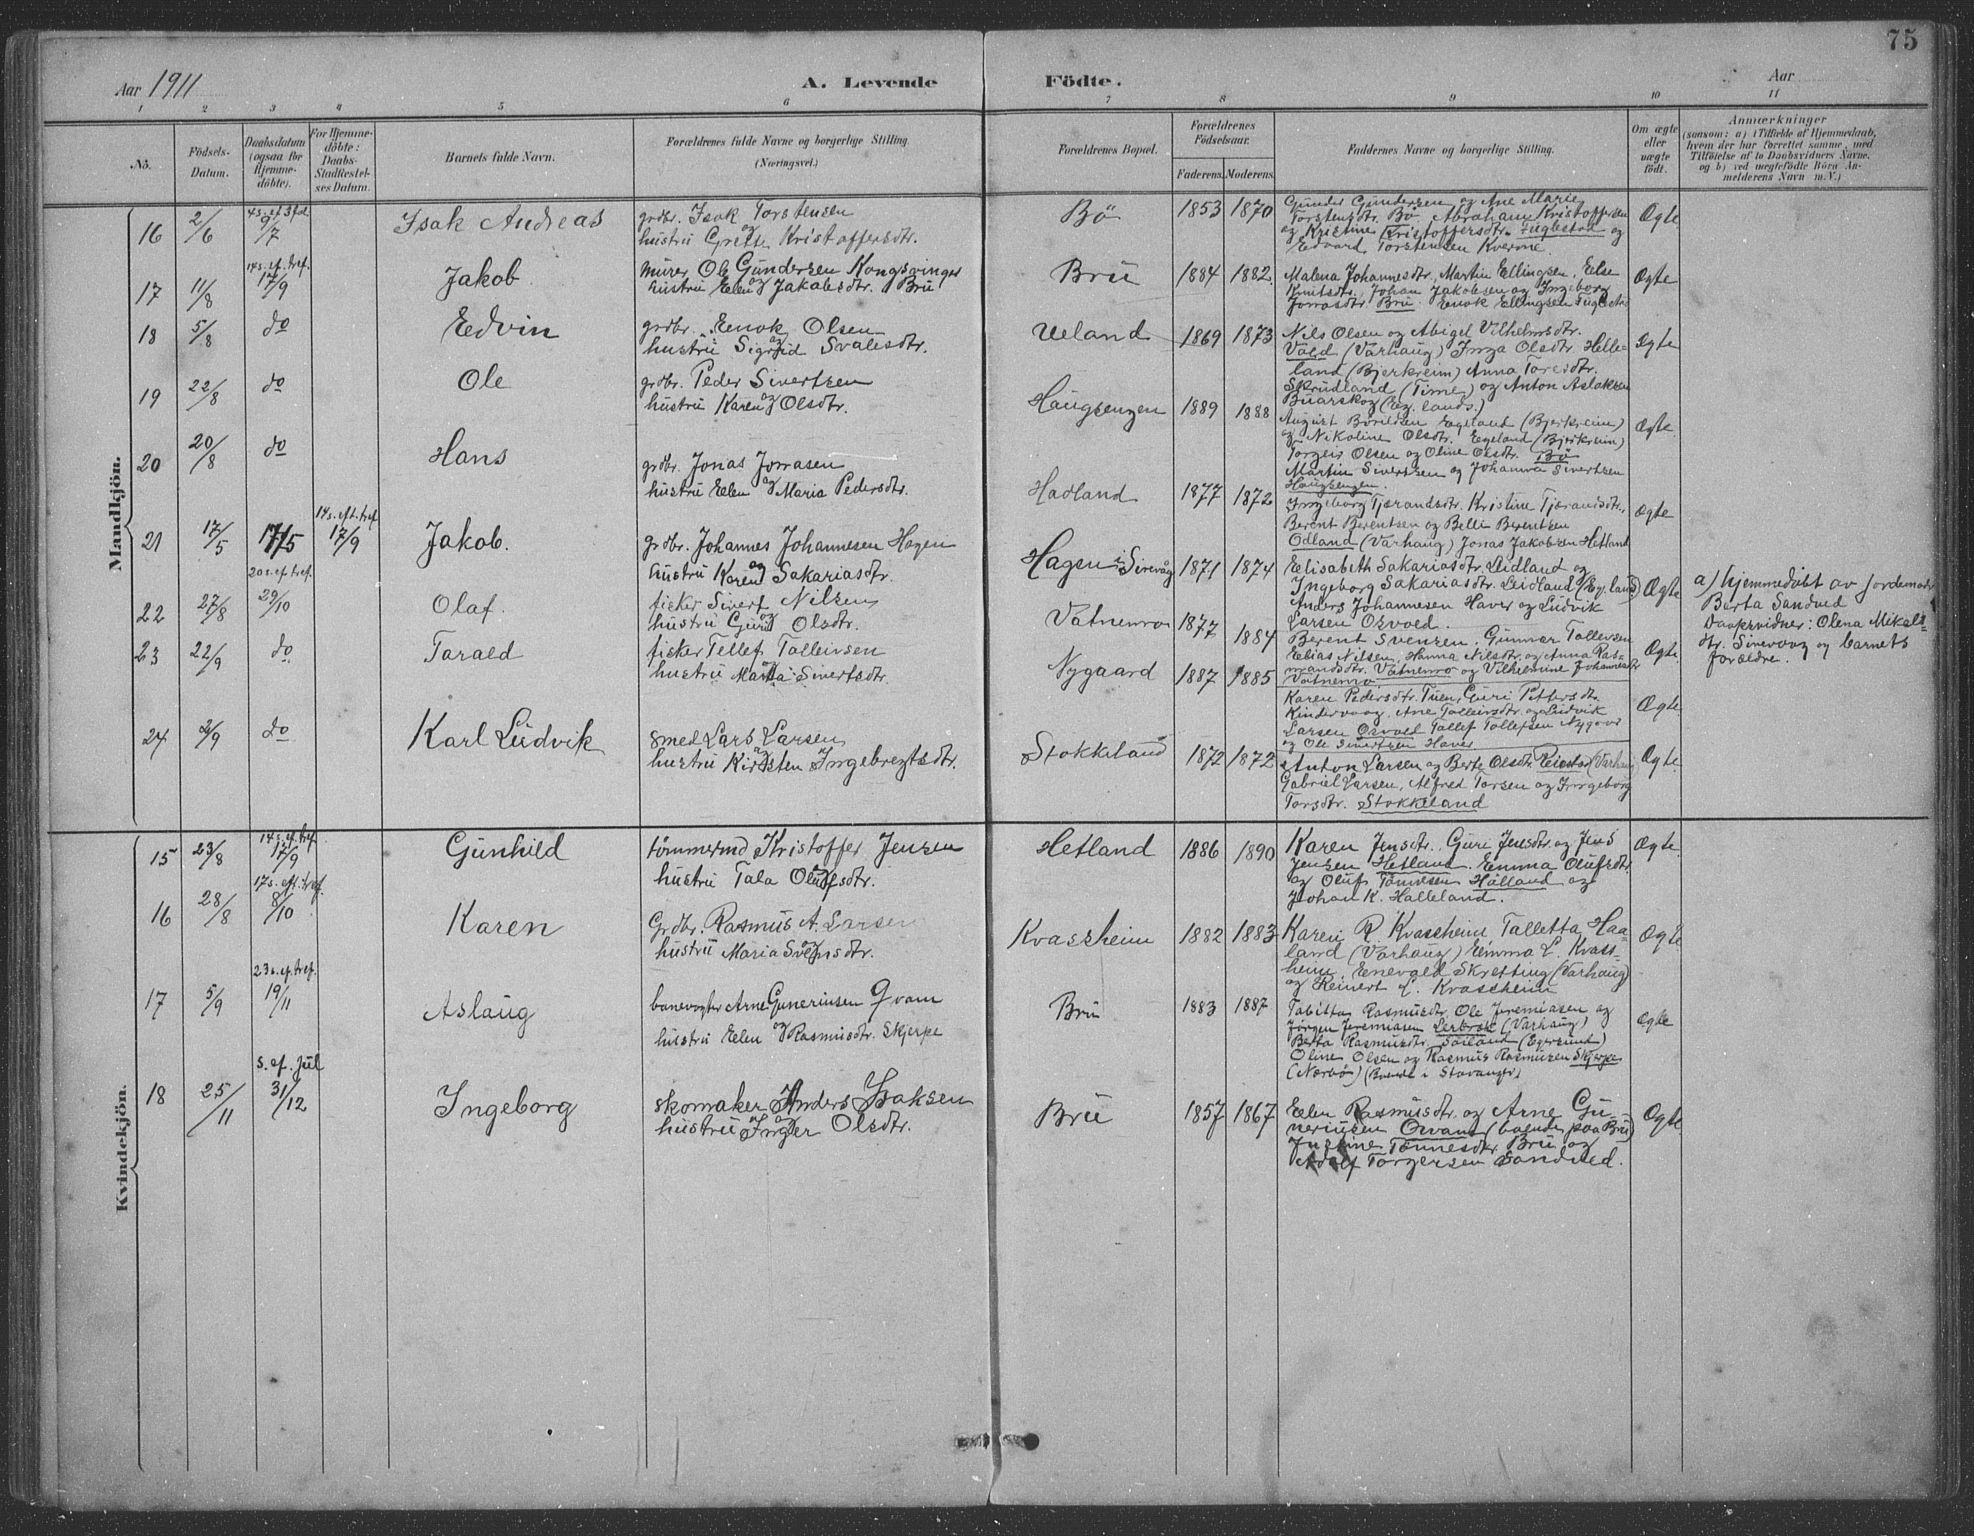 75
Aar 1911
A. Levende Födte.
Aar
1 2 3 4 5 6 7 8 9 10 11
No.
Födsels-Datum.
Daabsdatum (ogsaa for Hjemme-döbte).
For Hjemme-döbte: Daabs-Stadfæstel-ses Datum.
Barnets fulde Navn.
Forældrenes fulde Navne og borgerlige Stilling.
(Næringsvei.)
Forældrenes Bopæl.
Forældrenes Födselsaar.
Faderens. Moderens.
Faddernes Navne og borgerlige Stilling.
Om ægte eller uægte födt.
Anmærkninger
(saasom: a) i Tilfælde af Hjemmedaab,
hvem der har forrettet samme, med
Tilföielse af to Daabsvidners Navne,
og b) ved uægtefödte Börn An-
melderens Navn m. V.)
Mandkjön.
16 2/6 4 s. ef. 3 fol. 9/7 Isak Andreas
grdbr. Isak Torstensen
og
hustru Grette Kristoffersdtr.
Bö 1853 1870
Gunder Gundersen og Ane Marie
Torstensdtr. Bö, Abraham Kristoffersen
og Kristine Kristoffersdtr. Fuglestad og
Edvard Torstensen Kverme
Ægte
17 11/8 14 s. ef. tref. 17/9 Jakob
murer Ole Gundersen Kongsvinger
og
hustru Elen Jakobsdtr. Bru
Bru 1884 1882
Malena Johannesdtr, Martin Ellingsen, Else
Knutsdtr, Johan Jakobsen og Ingeborg
Jonasdtr Bru. Enok Ellingsen Fuglestad
Ægte
18 5/8 do Edvin
grdbr. Enok Olsen
og
hustru Sigrid Svalesdtr.
Ueland 1869 1873
Nils Olsen og Abigel Vilhelmsdtr.
Vold (Varhaug) Inga Olsdtr Helle-
land (Bjerkreim) Anna Toresdtr.
Skrudland (Time) og Anton Aslaksen
Buarskog (Eg. lands.)
Ægte
19 22/8 do Ole
grdbr. Peder Sivertsen
og
hustru Karen Olsdtr.
Haugsengen 1889 1888
August Bowildsen Egeland (Bjerkreim)
og Nikoline Olsdtr. Egeland (Bjerkreim)
Torgeir Olsen og Oline Olsdtr. Bö
Martin Sivertsen og Johanna Sivertsen
Haugsengen.
Ægte
20 20/8 do Hans
grdbr. Jonas Jonasen
og
hustru Elen Maria Pedersdtr.
Hadland 1877 1872
Ingeborg Tjærandsdtr. Kristine Tjærandsdtr.
Berent Berentsen og Belli Berentsen
Odland (Varhaug) Jonas Jakobsen Hetland
Ægte
21 17/5 17/5 14 s. eft. tref. 17/9 Jakob.
grdbr. Johannes Johannesen Hagen
og
hustru Karen Sakariasdtr.
Hagen i Sirevåg 1871 1874
Elisabeth Sakariasdtr. Leidland og
Ingeborg Sakariasdtr. Leidland (Eg. lands)
Anders Johannesen Haver og Ludvik
Larsen Osvold.
Ægte
a) hjemmedøbt av jordemoder
Berta Sandved
Daapsvidner: Olena Mikals-
dtr. Sirevaag og barnets
forældre.
22 27/8 20 s. ef. tref. 29/10 Olaf.
fisker Sivert Nilsen
og
hustru Guri Olsdtr.
Vatnemo 1877 1884
Berent Svensen, Gunnar Tollevsen
Elias Nilsen, Hanna Nilsdtr. og Anna Ras-
mundsdtr. Vatnemo og Vilhelmine Johannesdtr
Vatnemo
Ægte
23 22/9 do Tarald
fisker Tellef Talleivsen
og
hustru Marta Sivertsdtr.
Nygaard 1887 1885
Karen Pedersdtr. Tuen, Guri Pettersdtr.
Kindervaag, Ane Talleivsdtr. og Ludvik
Larsen Osvold Tallef Tollefsen Nygaar
og Ole Sivertsen Haver
Ægte
24 2/9 do Karl Ludvik
smed Lars Larsen
og
hustru Kirsten Ingebregtsdtr.
Stokkeland 1872 1872
Anton Larsen og Berte Olsdtr. Reiestad (Varhaug
Gabriel Larsen, Alfred Torsen og Ingeborg
Torsdtr. Stokkeland
Ægte.
Kvindekjön.
15 23/8 14 s. ef. tref. 17/9 Gunhild
tömmermd Kristoffer Jensen
og
hustru Tala Olufsdtr.
Hetland 1886 1890
Karen Jensdtr. Guri Jensdtr. og Jens
Jensen Hetland. Emma Olufsdtr.
og Oluf Tönnesen Hålland og
Johan K. Halleland.
Ægte.
16 28/8 17 s. eft. tref. 8/10 Karen
Grdbr. Rasmus A. Larsen
og
hustru Maria Svensdtr.
Kvassheim 1882 1883
Karen R Kvassheim Talletta Haa-
land (Varhaug) Emma L. Kvass-
heim, Enevald Skretting (Varhaug)
og Reinert L. Kvassheim
Ægte
17 5/9 23 s. ef. tref. 19/11 Aslaug
banevogter Arne Gunerinsen Qvam
og
hustru Elen Rasmusdtr. Skjerpe
Bru 1883 1887
Tabitta Rasmusdtr. Ole Jeremiasen og
Jørgen Jeremiasen Lerbrek (Varhaug)
Berta Rasmusdtr. Søiland (Egersund)
Oline Olsen og Rasmus Rasmusen Skjerpe
(Nærbö) (Boende i Stavanger)
Ægte
18 25/11 s. ef. Jul 31/12 Ingeborg
skomaker Anders Isaksen
og
hustru Inger Olsdtr.
Bru 1857 1867
Elen Rasmusdtr. og Arne Gu-
neriusen Qvam (boende paa Bru)
Justine Tönnesdtr Bru og
Adolf Torgersen Sandved.
Ægte